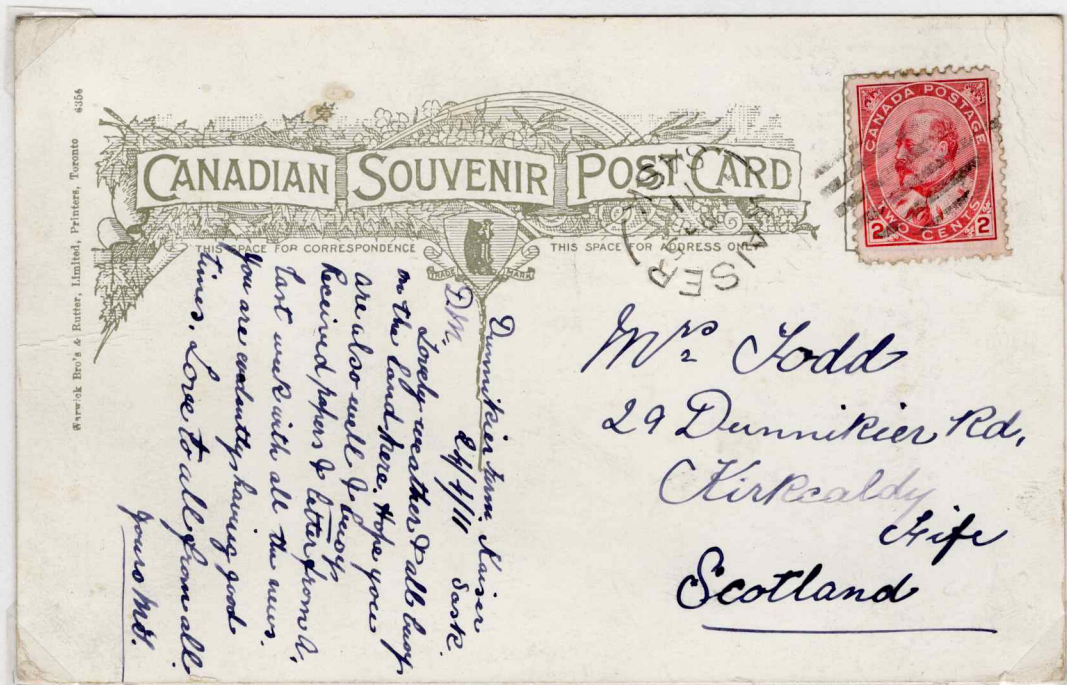 Warwick Bro's & Rutter, Limited, Printers, Toronto 4354
CANADIAN SOUVENIR POST CARD
THIS SPACE FOR CORRESPONDENCE
THIS SPACE FOR ADDRESS ONLY
TRADE MARK
CANADA POSTAGE
TWO CENTS
2 2
KAISER
SASK
Dunnikier Farm, Kaiser
24/4/11 Sask.
D.M.
Lovely weather & all busy
on the land here. Hope you
are also well & busy
Received papers & letter from
last week with all the news.
You are evidently having good
times. Love to all from all.
yours
Mrs Todd
29 Dunnikier Rd,
Kirkcaldy
Fife
Scotland